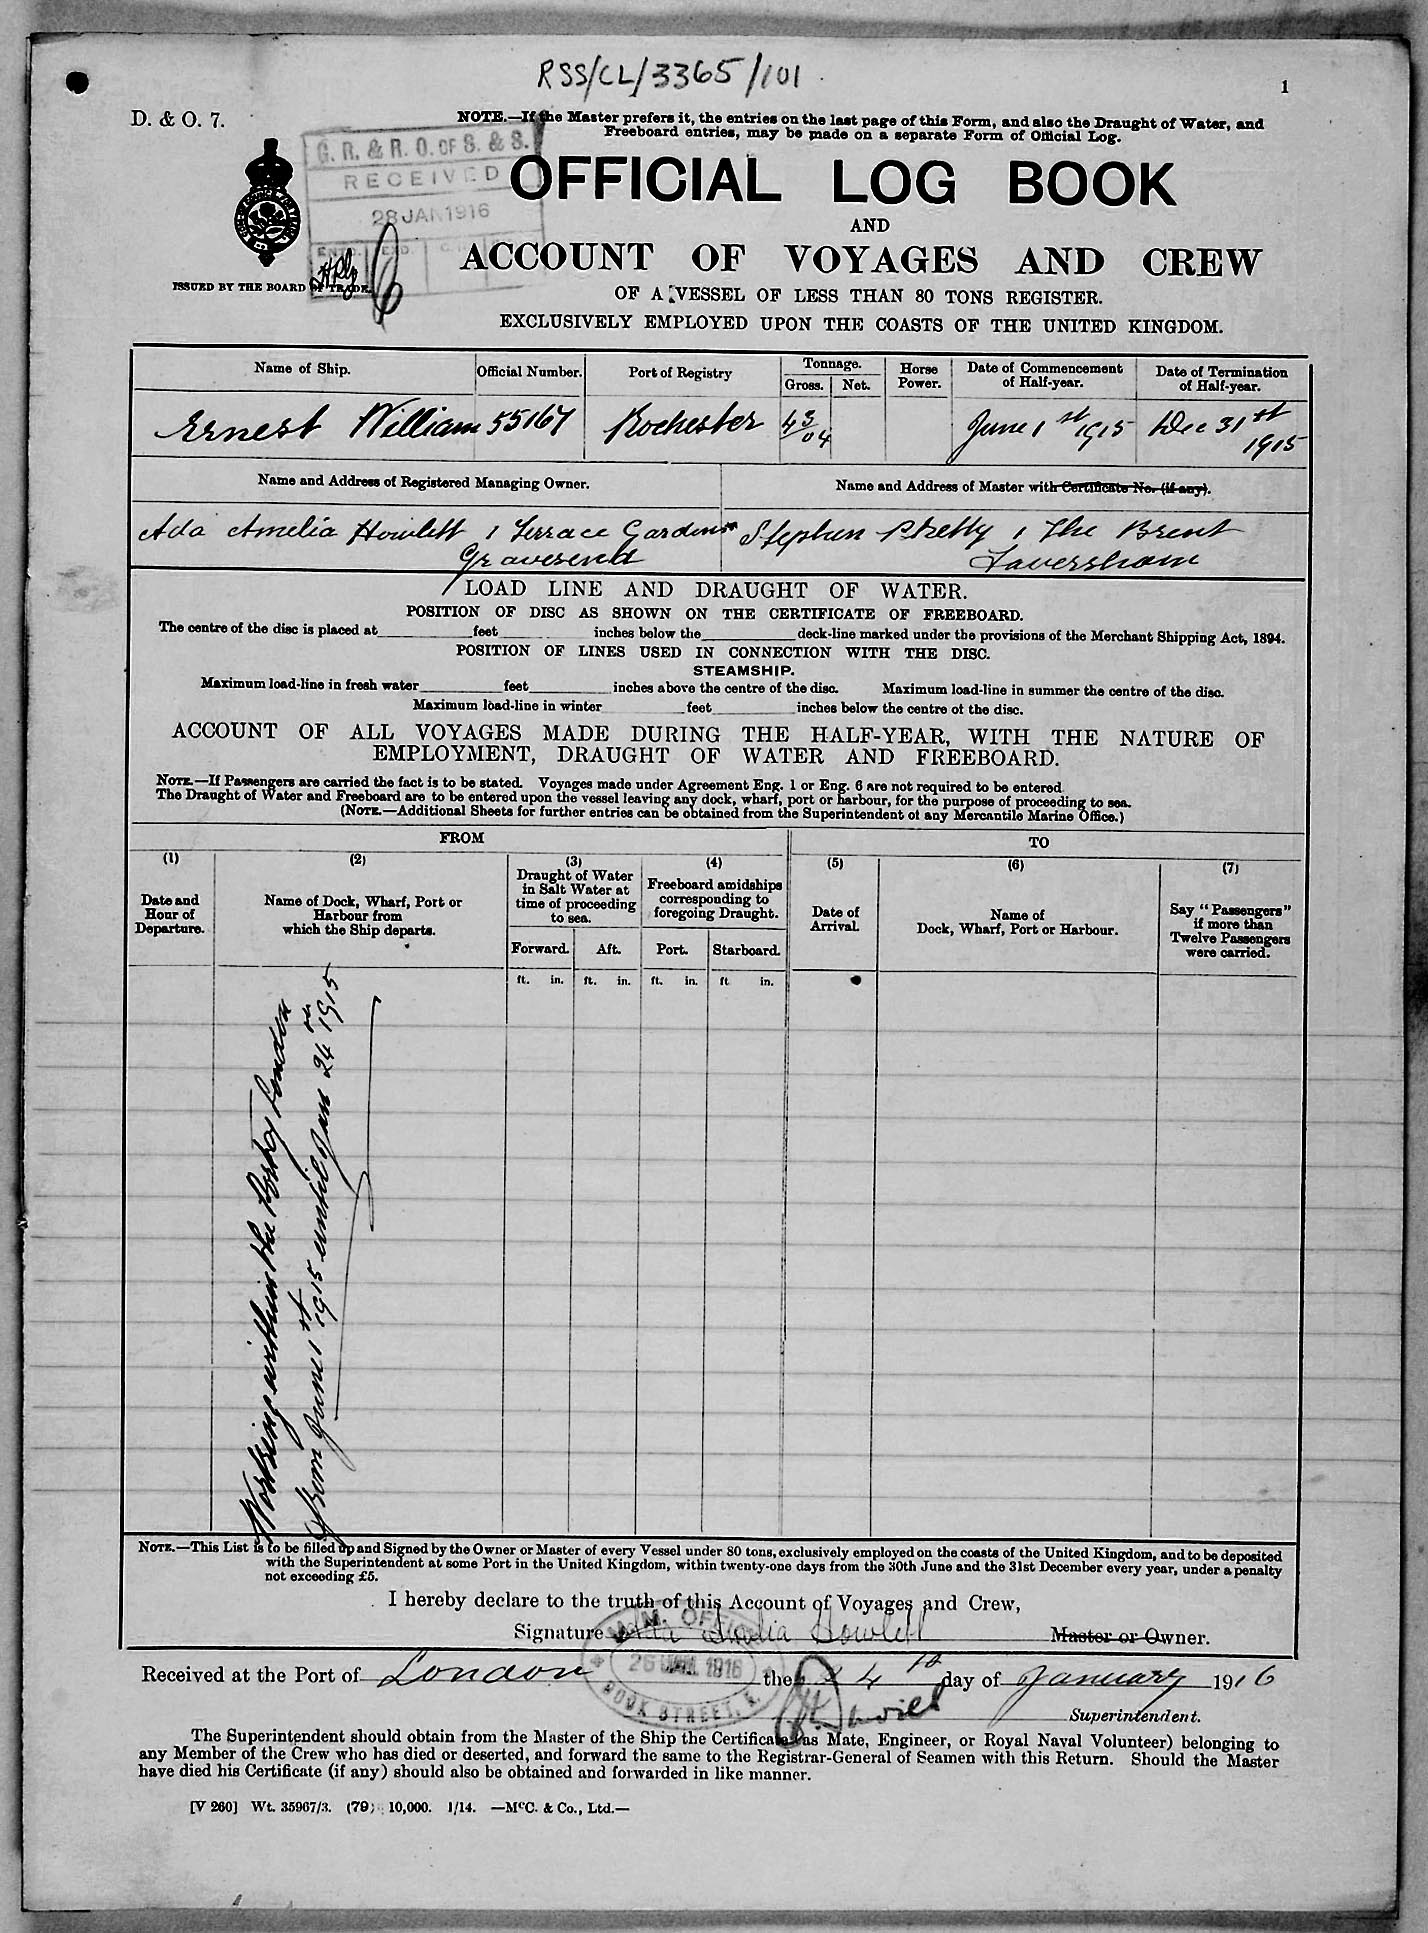 RSS/CL/3365/101
1
D. & O. 7.
NOTE.—If the Master prefers it, the entries on the last page of this Form, and also the Draught of Water, and
Freeboard entries, may be made on a separate Form of Official Log.
G. R. & R. O. OF S. & S.
RECEIVED
28 JAN 1916
OFFICIAL LOG BOOK
AND
ACCOUNT OF VOYAGES AND CREW
ISSUED BY THE BOARD OF TRADE.
OF A VESSEL OF LESS THAN 80 TONS REGISTER.
EXCLUSIVELY EMPLOYED UPON THE COASTS OF THE UNITED KINGDOM.
Name of Ship. Official Number. Port of Registry Tonnage. Gross. Net. Horse Power. Date of Commencement of Half-year. Date of Termination of Half-year.
Ernest William 55167 Rochester 43/04 June 1st 1915 Dec 31st 1915
Name and Address of Registered Managing Owner. Name and Address of Master with Certificate No. (if any).
Ada Amelia Howlett 1 Terrace Gardens Stephen Pretty 1 The Brent
Gravesend Faversham
LOAD LINE AND DRAUGHT OF WATER.
POSITION OF DISC AS SHOWN ON THE CERTIFICATE OF FREEBOARD.
The centre of the disc is placed at feet inches below the deck-line marked under the provisions of the Merchant Shipping Act, 1894.
POSITION OF LINES USED IN CONNECTION WITH THE DISC.
STEAMSHIP.
Maximum load-line in fresh water feet inches above the centre of the disc. Maximum load-line in summer the centre of the disc.
Maximum load-line in winter feet inches below the centre of the disc.
ACCOUNT OF ALL VOYAGES MADE DURING THE HALF-YEAR, WITH THE NATURE OF
EMPLOYMENT, DRAUGHT OF WATER AND FREEBOARD.
NOTE.—If Passengers are carried the fact is to be stated. Voyages made under Agreement Eng. 1 or Eng. 6 are not required to be entered
The Draught of Water and Freeboard are to be entered upon the vessel leaving any dock, wharf, port or harbour, for the purpose of proceeding to sea.
(NOTE.—Additional Sheets for further entries can be obtained from the Superintendent of any Mercantile Marine Office.)
FROM TO
(1) (2) (3) (4) (5) (6) (7)
Date and Hour of Departure.
Name of Dock, Wharf, Port or Harbour from which the Ship departs.
Draught of Water in Salt Water at time of proceeding to sea.
Freeboard amidships corresponding to foregoing Draught.
Date of Arrival.
Name of Dock, Wharf, Port or Harbour.
Say "Passengers" if more than Twelve Passengers were carried.
Forward. Aft. Port. Starboard.
ft. in. ft. in. ft. in. ft in.
Working within the Port of London
from June 1st 1915 until Jan 24 1915
NOTE.—This List is to be filled up and Signed by the Owner or Master of every Vessel under 80 tons, exclusively employed on the coasts of the United Kingdom, and to be deposited
with the Superintendent at some Port in the United Kingdom, within twenty-one days from the 30th June and the 31st December every year, under a penalty
not exceeding £5.
I hereby declare to the truth of this Account of Voyages and Crew,
Signature Ada Amelia Howlett Master or Owner.
M. M. OFFICE
26 JAN. 1916
DOCK STREET, E.
Received at the Port of London the 24th day of January 1916
Superintendent.
The Superintendent should obtain from the Master of the Ship the Certificate (as Mate, Engineer, or Royal Naval Volunteer) belonging to
any Member of the Crew who has died or deserted, and forward the same to the Registrar-General of Seamen with this Return. Should the Master
have died his Certificate (if any) should also be obtained and forwarded in like manner.
[V 260] Wt. 35967/3. (79) 10,000. 1/14. —McC. & Co., Ltd.—